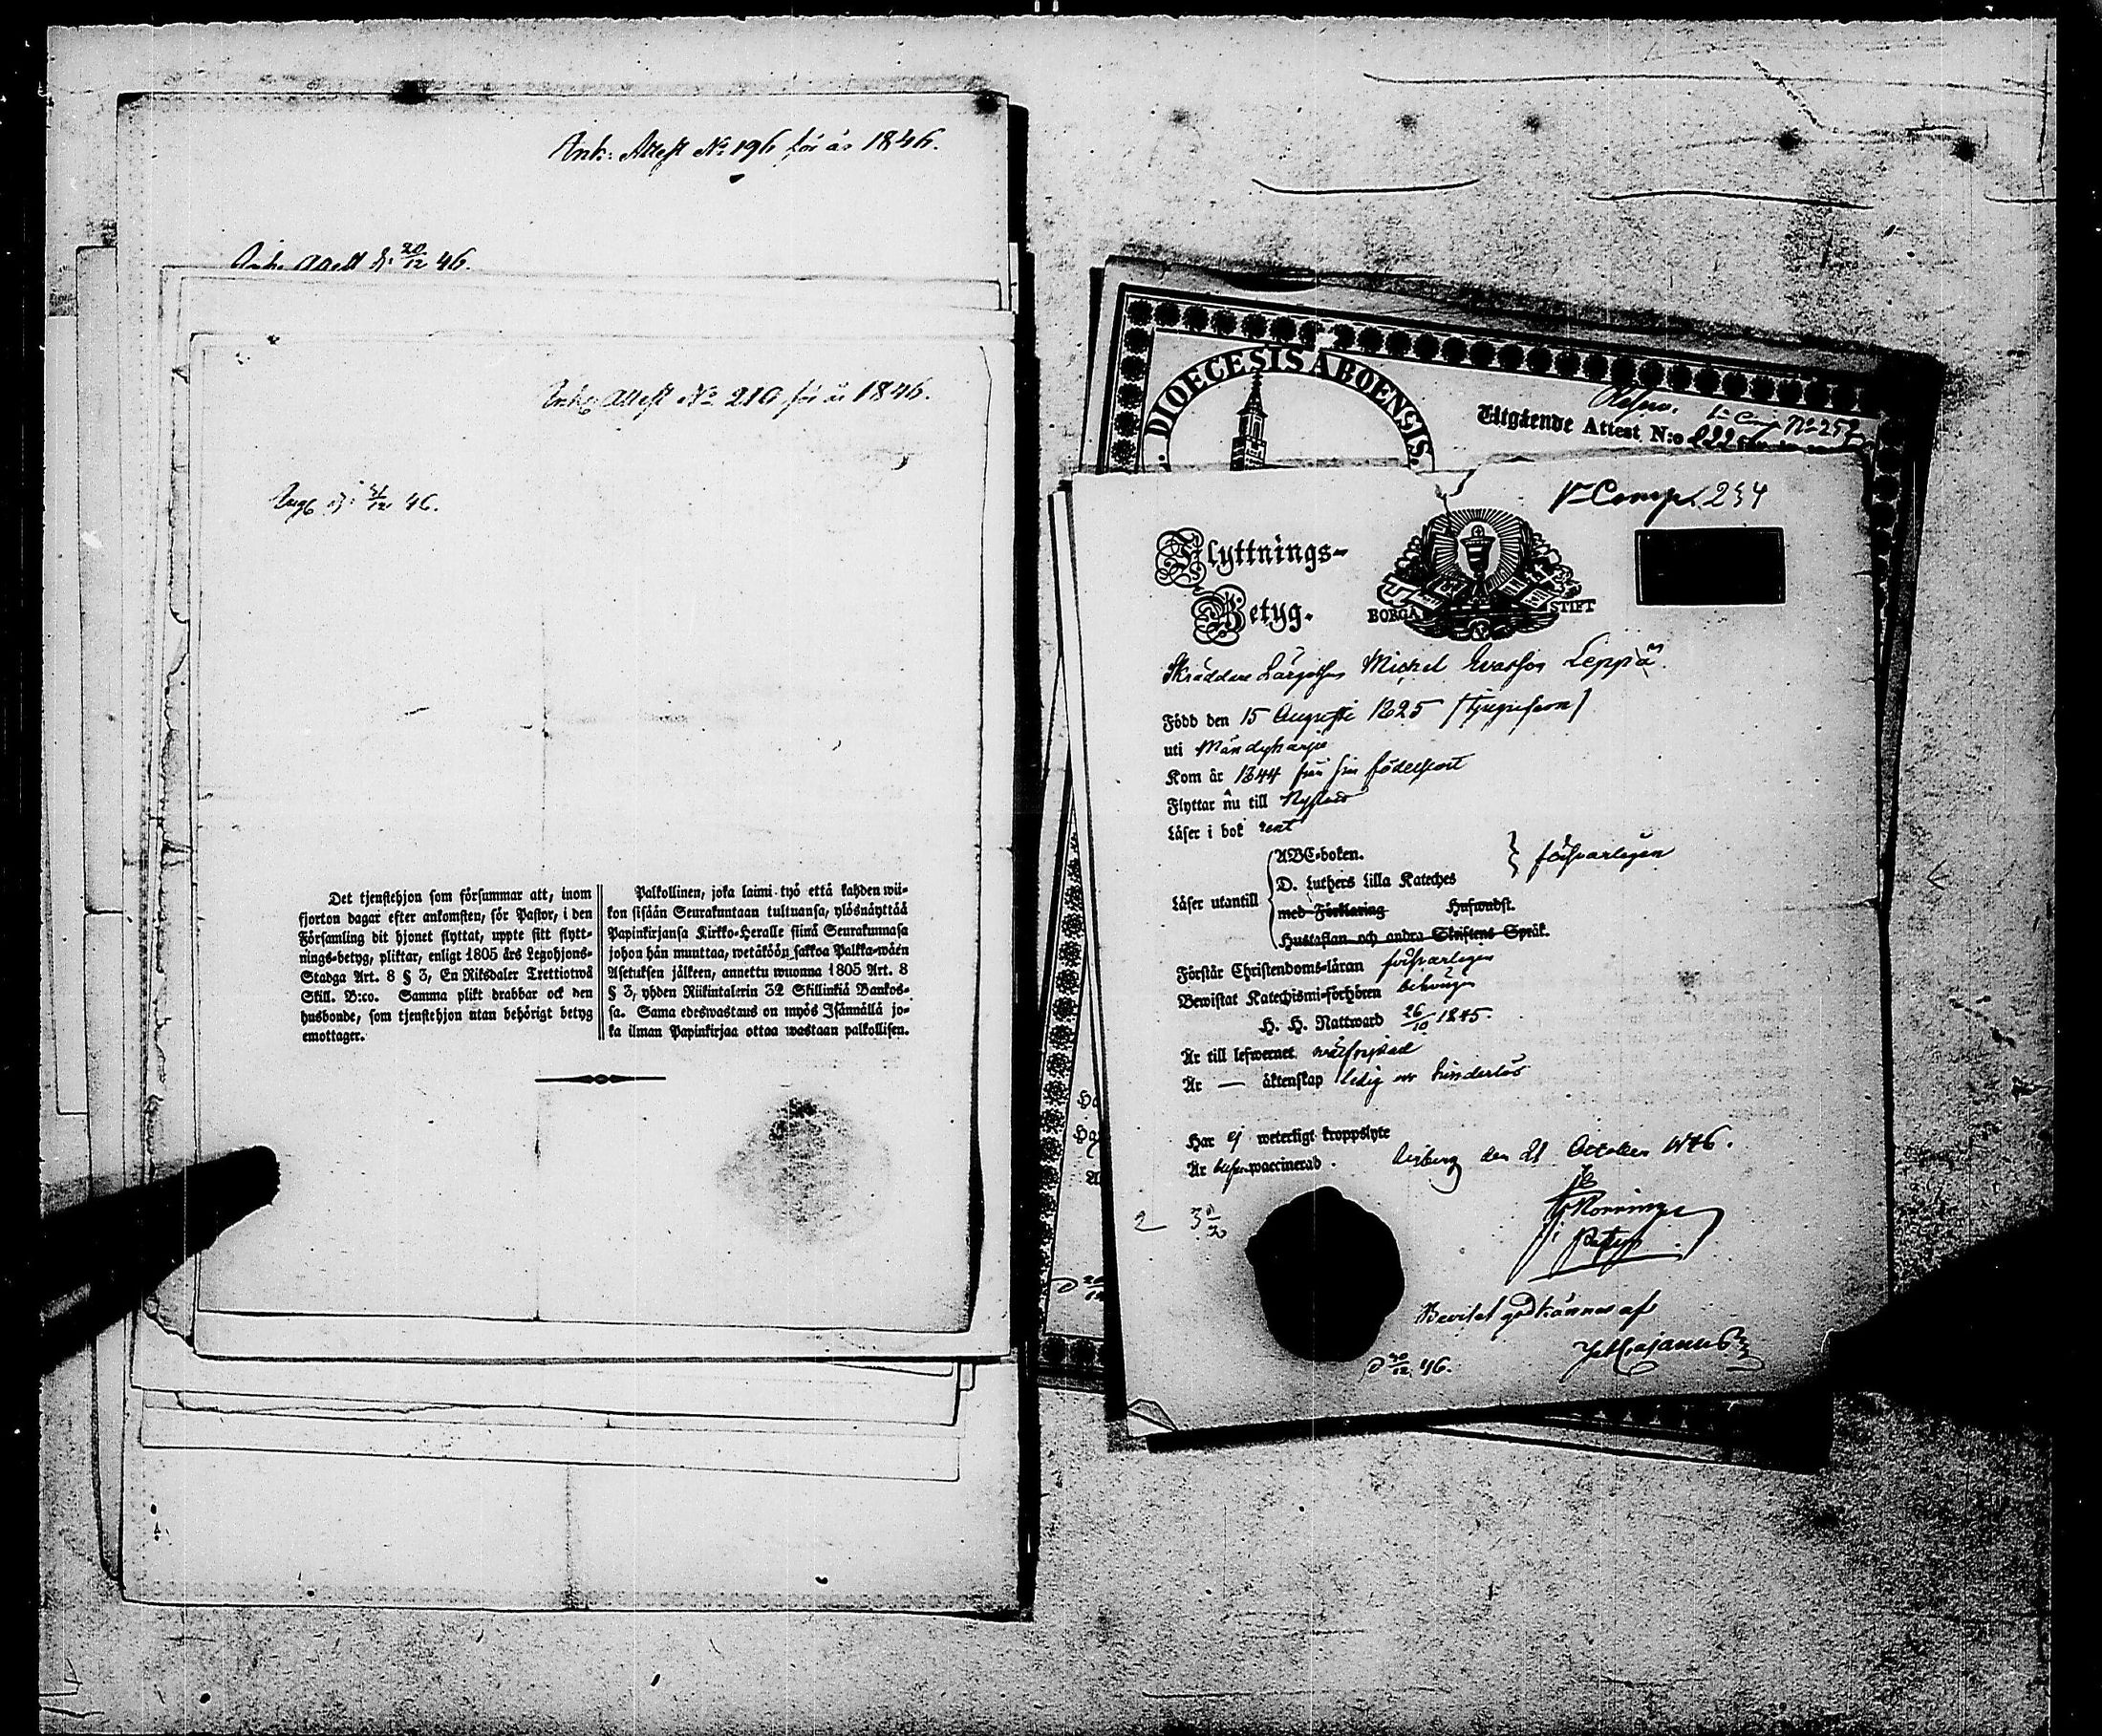 Ank. Attest No 196 för år 1846.
Ank. Attest d: 20/12 46.
Ank. Attest No 210 för år 1846.
d: 21/12 46.
Det tjenstehjon som försummar att, inom
fjorton dagar efter ankomsten, för Pastor, i den
Församling dit hjonet flyttat, uppte sitt flytt-
nings-betyg, pliktar, enligt 1805 års Legohjons-
Stadga Art. 8 § 3, En Riksdaler Trettiotwå
Skill. B:co. Samma plikt drabbar ock den
husbonde, som tjenstehjon utan behörigt betyg
emottager.
Palkollinen, joka laimi-lyö että kahden wii-
kon sisään Seurakuntaan tultuansa, ylösnäyttää
Papinkirjansa Kirkko-Heralle siinä Seurakunnasa
johon hän muuttaa, wetäköön sakkoa Palkka-wäen
Asetuksen jälkeen, annettu wuonna 1805 Art. 8
§ 3, yhden Riikintalerin 32 Skillinkiä Bankos-
sa. Sama edeswastaus on myös Isännällä jo-
ka ilman Papinkirjaa ottaa wastaan palkollisen.
DIOECESIS ABOENSIS.
Utgående Attest N:o
Comp. 254
Flyttnings-
Betyg.
BORGÅ STIFT
Skräddare Michel Leppä
Född den 15 Augusti 1825
uti Mändyharju
Kom år 1844 från sin födelseort
Flyttar nu till Nystad
Läser i bok rent
ABC-boken.
D. Luthers Lilla Kateches
försvarligen
Läser utantill
med Förklaring Hufwudst.
Hustaflan och andra Skriftens Språk.
Förstår Christendoms-läran försvarligen
Bewistat Katechismi-förhören behörigen
H. H. Nattward 26/10 1845
Är till lefwernet wälfrejdad
Är — äktenskap ledig och hinderlös
Har ej weterligt kroppslyte
Är waccinerad.
den 21 October 1846.
Beviset godkännes af
d 20/12 46.